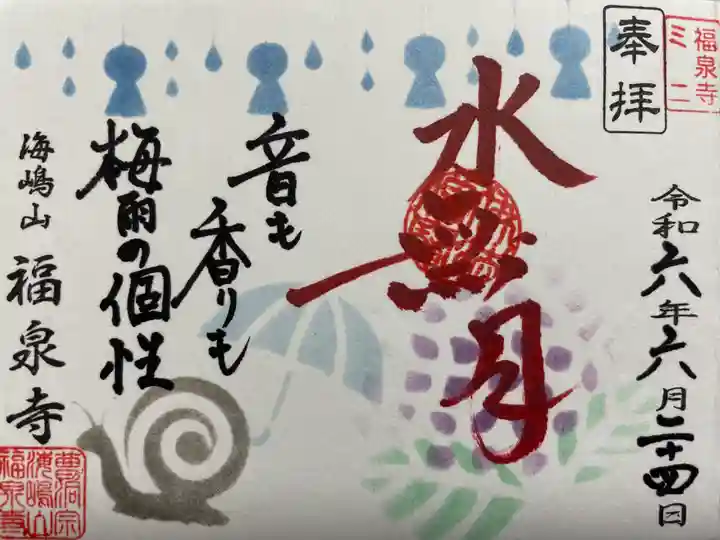 奉拝
福泉寺
ミニ
令和六年六月二十四日
水無月
音も
香りも
梅雨の個性
海嶋山 福泉寺
曹洞宗
海嶋山
福泉寺